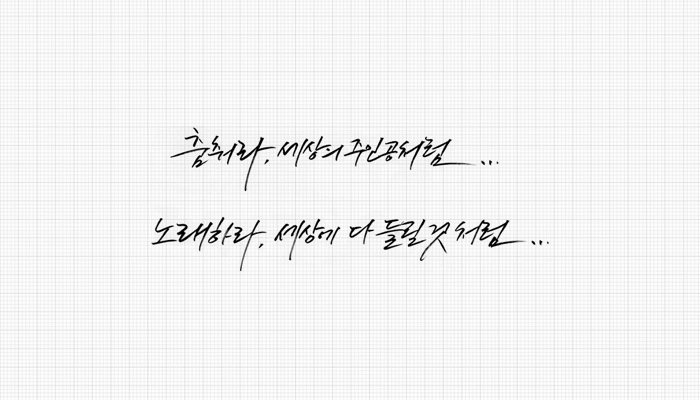 춤춰라, 세상의 주인공처럼 ...
노래하라, 세상에 다 들릴 것처럼 ...